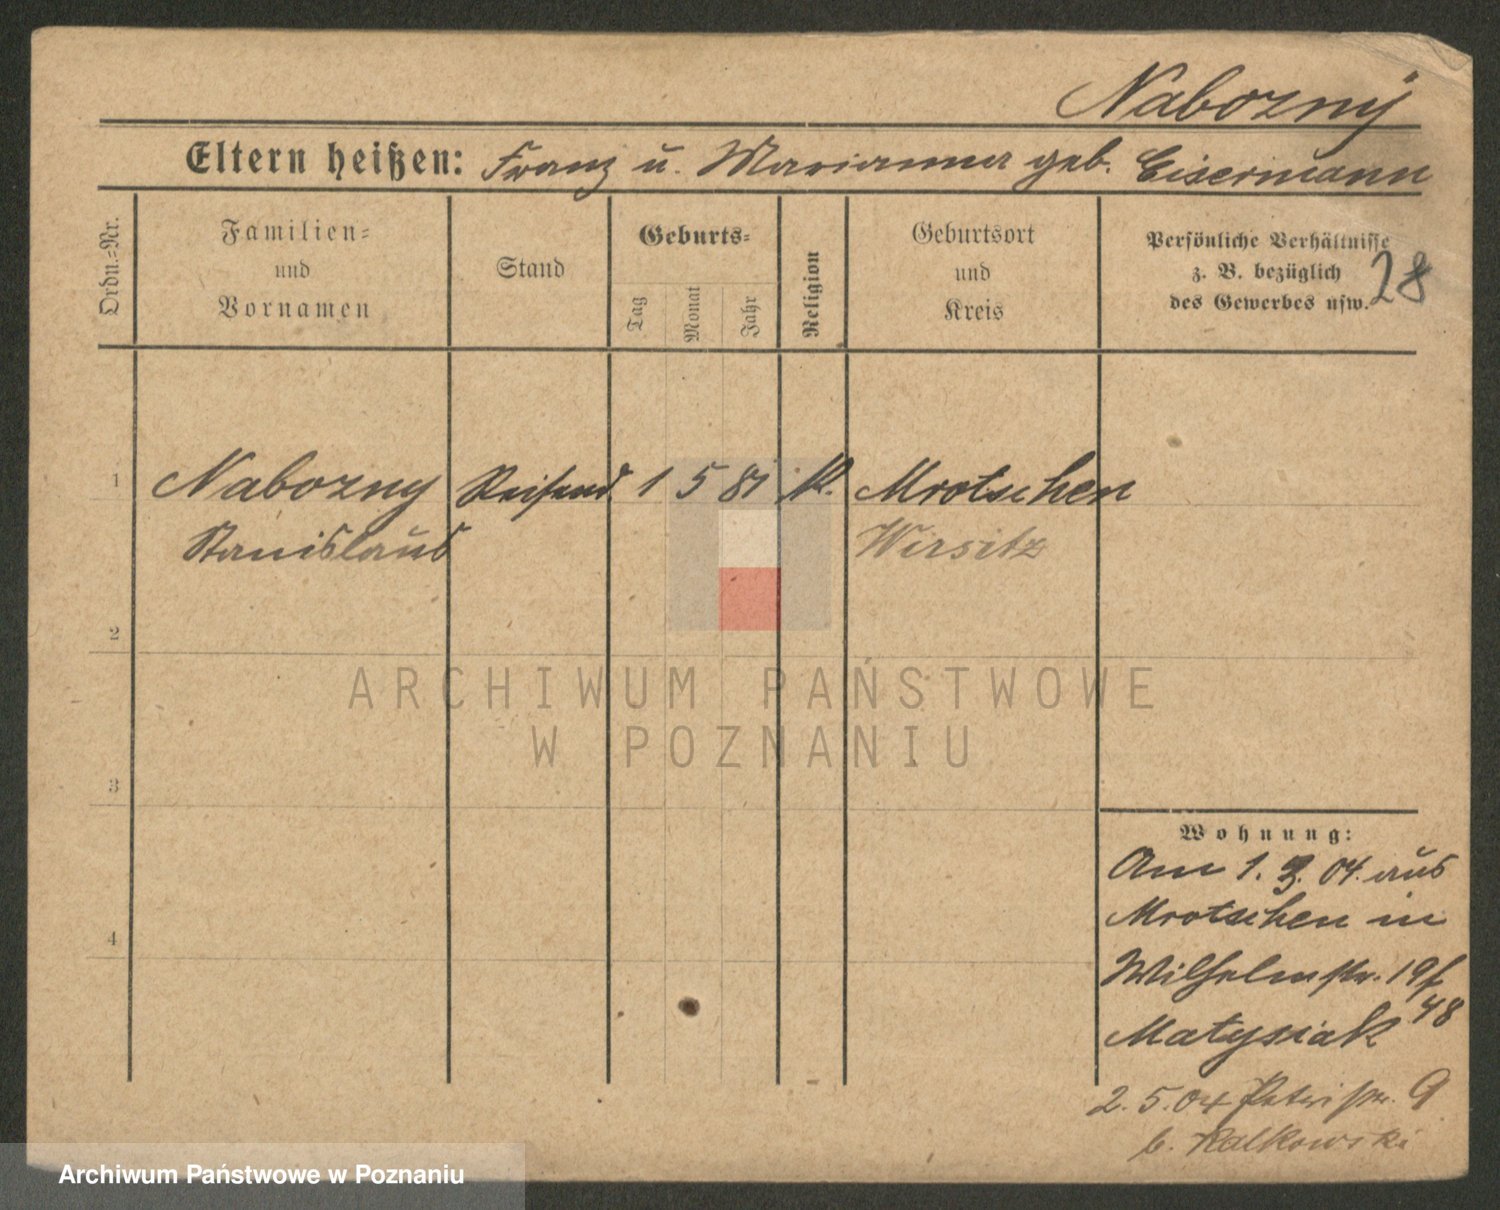 Nabozny
Eltern heißen: Franz u. Marianna geb. Eisermann
Ordn.=Nr.
Familien=
und
Vornamen
Stand
Geburts=
Tag
Monat
Jahr
Religion
Geburtsort
und
Kreis
Persönliche Verhältnisse
z. B. bezüglich
des Gewerbes usw.
28
1 Nabozny Reisend. 1 5 81 K. Mrotschen
Stanislaus Wirsitz
2
3
4
Wohnung:
Am 1. 3. 04. aus
Mrotschen in
Wilhelmstr. 19/
48
Matysiak
2. 5. 04 Petristr. 9
b. Kalkowski
ARCHIWUM PAŃSTWOWE
W POZNANIU
Archiwum Państwowe w Poznaniu